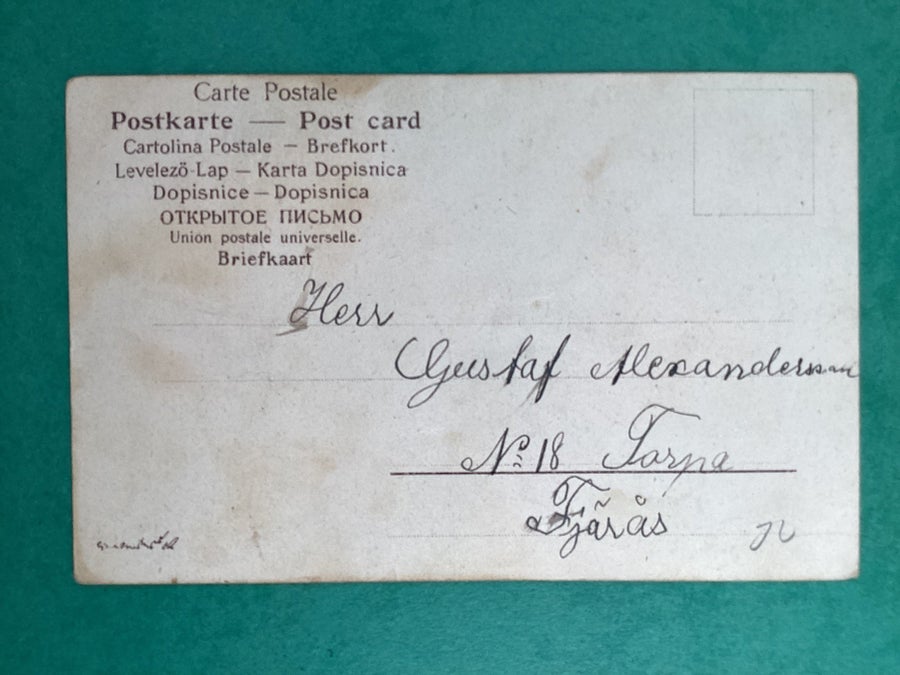 Carte Postale
Postkarte — Post card
Cartolina Postale — Brefkort.
Levelező-Lap — Karta Dopisnica
Dopisnice — Dopisnica
ОТКРЫТОЕ ПИСЬМО
Union postale universelle.
Briefkaart
Herr
Gustaf Alexandersson
No 18 Torpa
Fjärås